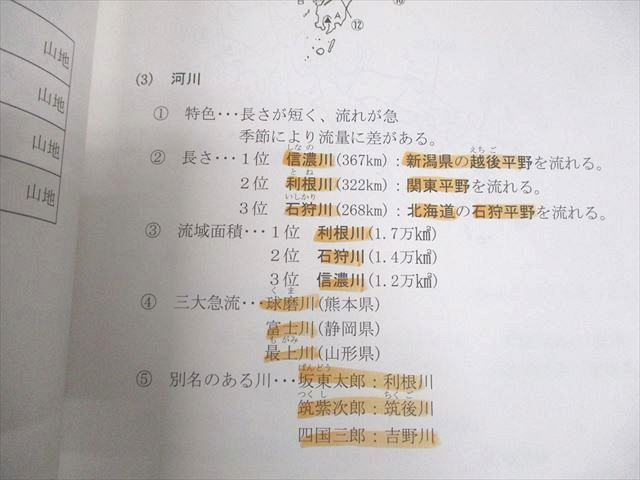 ⑯
A
⑫
山地
山地
山地
山地
(3) 河川
① 特色･･･長さが短く、流れが急
季節により流量に差がある。
② 長さ･･･１位 信濃川(367km)：新潟県の越後平野を流れる。
しなの えちご
２位 利根川(322km)：関東平野を流れる。
とね
３位 石狩川(268km)：北海道の石狩平野を流れる。
いしかり
③ 流域面積･･･１位 利根川(1.7万k㎡)
２位 石狩川(1.4万k㎡)
３位 信濃川(1.2万k㎡)
④ 三大急流･･･球磨川(熊本県)
くま
富士川(静岡県)
最上川(山形県)
もがみ
⑤ 別名のある川･･･坂東太郎：利根川
ばんどう
筑紫次郎：筑後川
つくし ちくご
四国三郎：吉野川